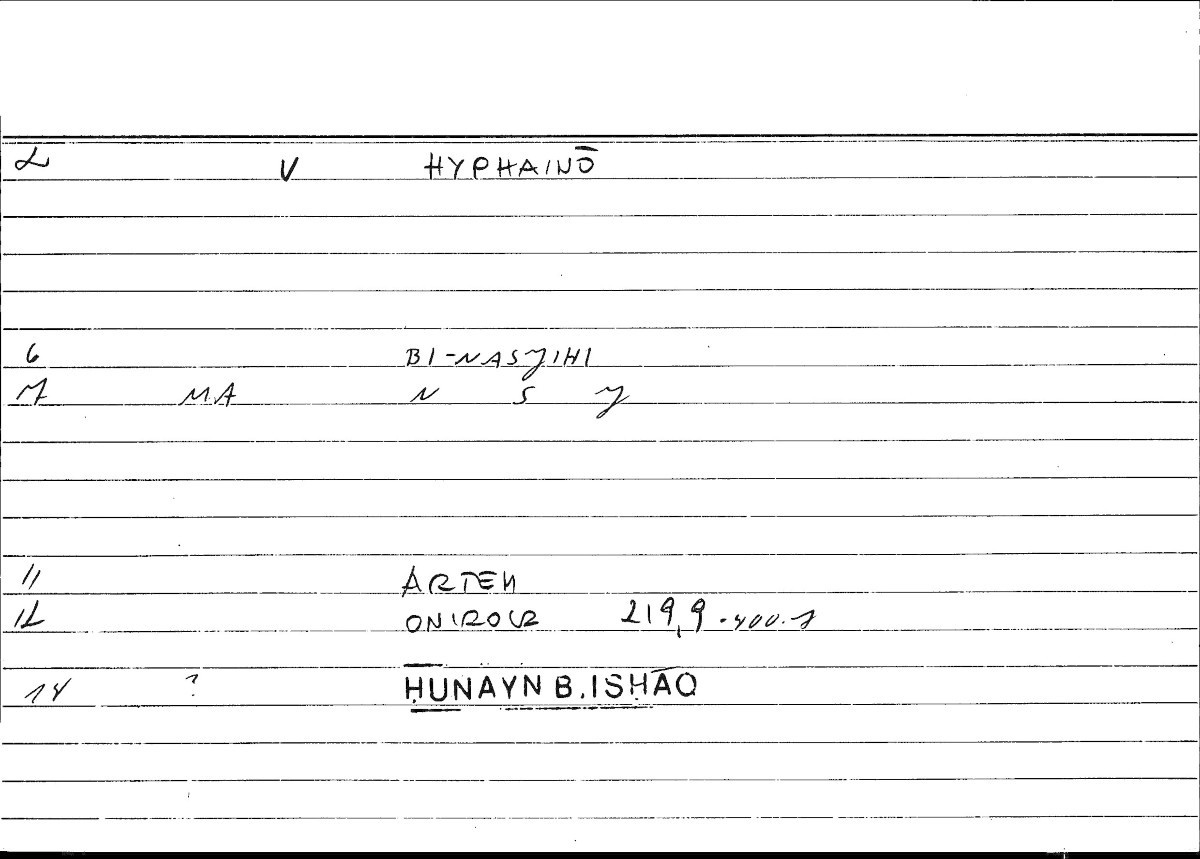 2 V HYPHAINŌ
6 BI-NASJIHI
7 MA N S J
11 ARTEM
12 ONIROCR 219,9
14 ? ḤUNAYN B. ISḤĀQ